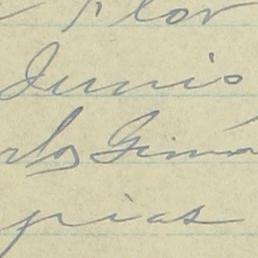 Flor
Junio
rlos Gimé
pias